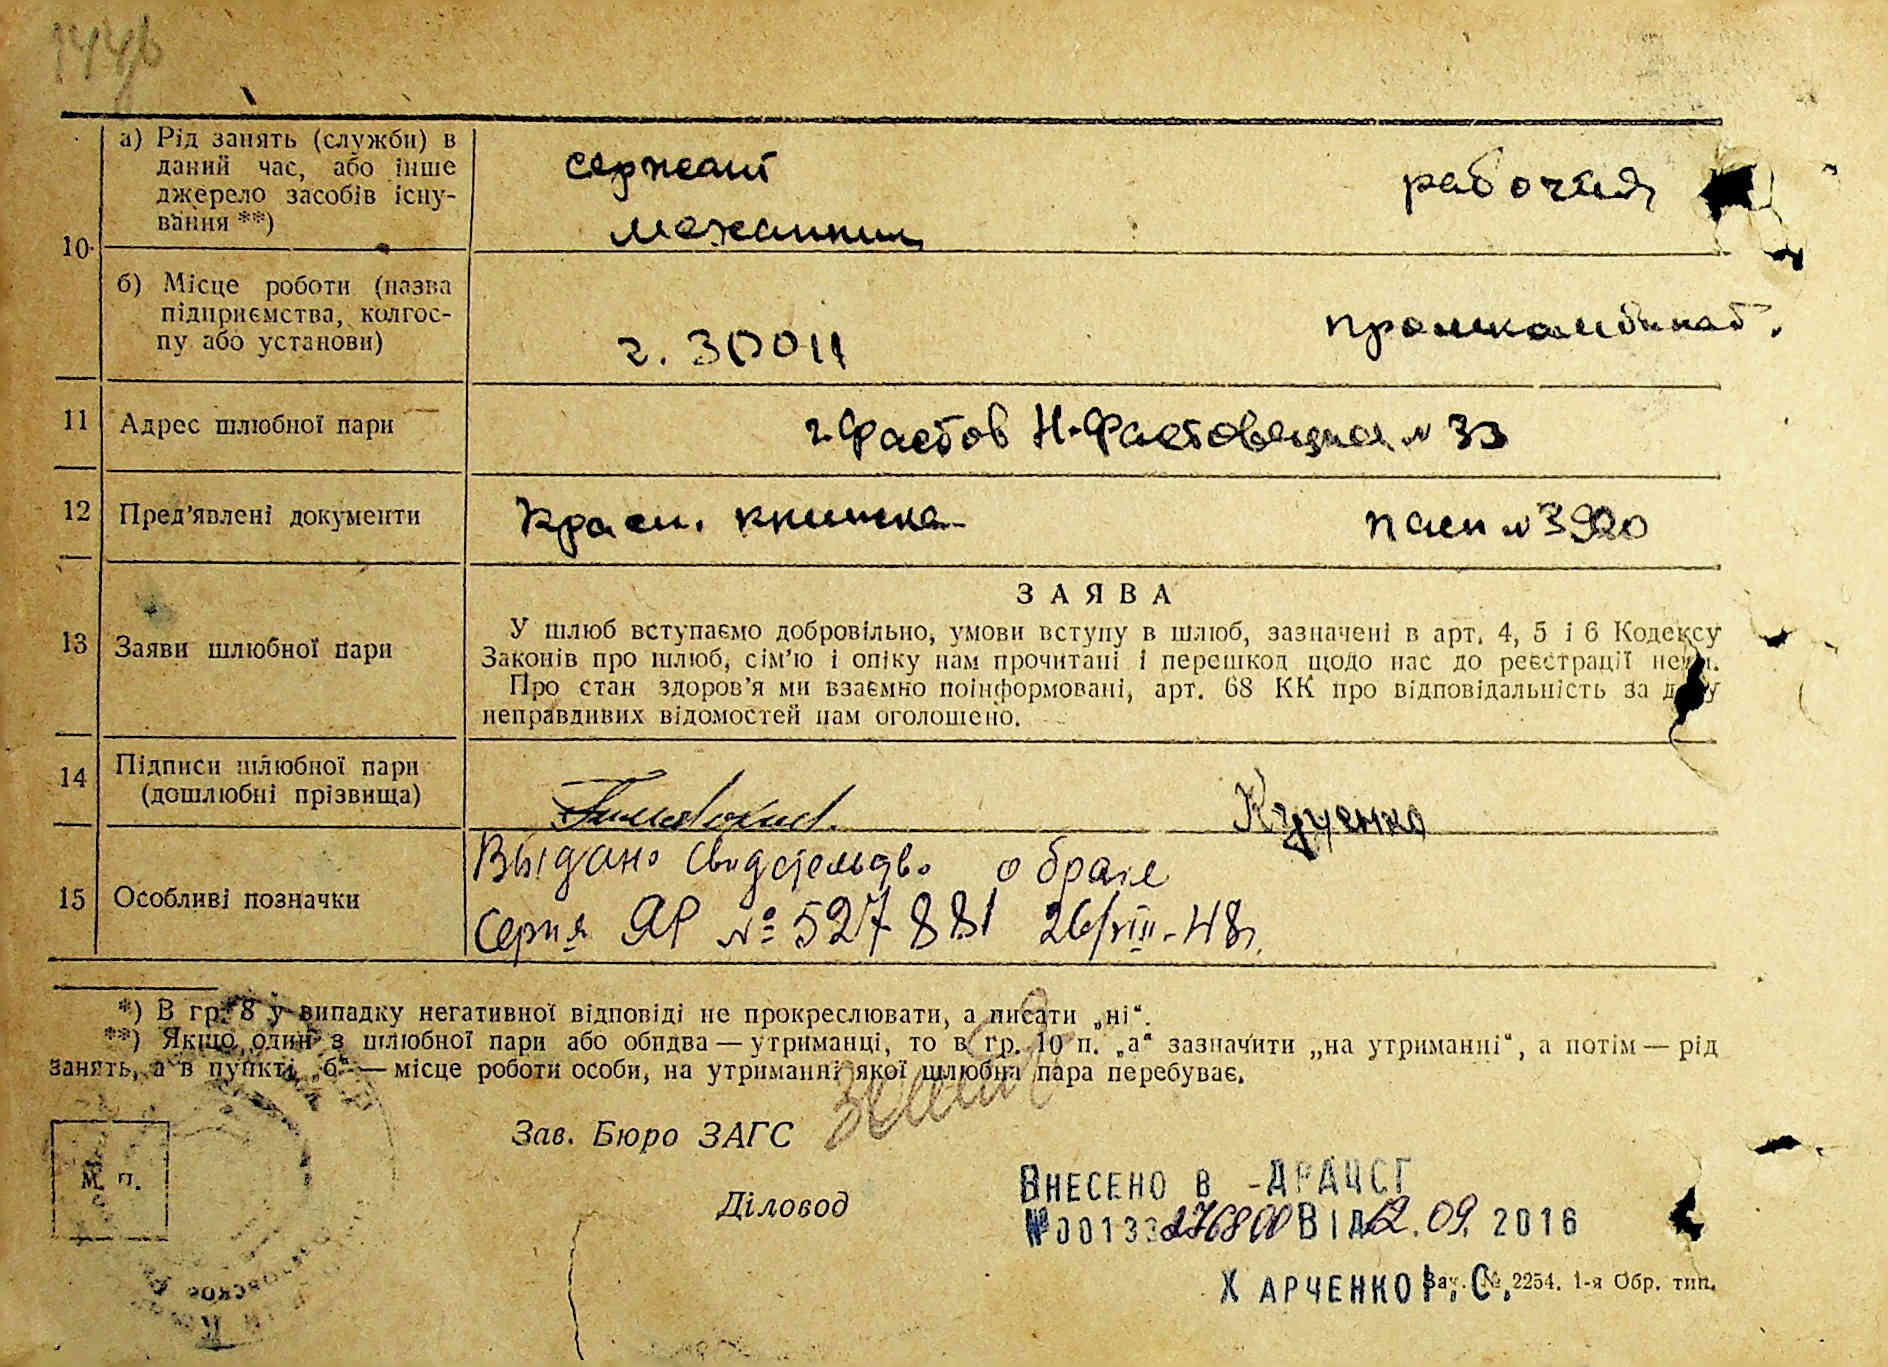 а) Рід занять (служби) в
даний час, або інше
джерело засобів існу-
вання **)
сержант рабочая
механик
10
б) Місце роботи (назва
підприємства, колгос-
пу або установи)
промкомбинат.
11 Адрес шлюбної пари г. Фастов Н-Фастовецкая № 33
12 Пред'явлені документи красн. книжка пасп № 3920
ЗАЯВА
13 Заяви шлюбної пари
У шлюб вступаємо добровільно, умови вступу в шлюб, зазначені в арт. 4, 5 і 6 Кодексу
Законів про шлюб, сім'ю і опіку нам прочитані і перешкод щодо нас до реєстрації нема.
Про стан здоров'я ми взаємно поінформовані, арт. 68 КК про відповідальність за дачу
неправдивих відомостей нам оголошено.
14 Підписи шлюбної пари
(дошлюбні прізвища)
Куценко
Выдано Свидетельство о браке
15 Особливі позначки
Серия ЯР № 527881 26/VIII-48г.
*) В гр. 8 у випадку негативної відповіді не прокреслювати, а писати „ні“.
**) Якщо один з шлюбної пари або обидва — утриманці, то в гр. 10 п. „а“ зазначити „на утриманні“, а потім — рід
занять, а в пункті „б“ — місце роботи особи, на утриманні якої шлюбна пара перебуває.
Зав. Бюро ЗАГС
М. П.
Діловод
ВНЕСЕНО В ДРАЦСГ
№00133276800 ВІД 12.09.2016
ХАРЧЕНКО І. С.
Зак. № 2254. 1-я Обр. тип.